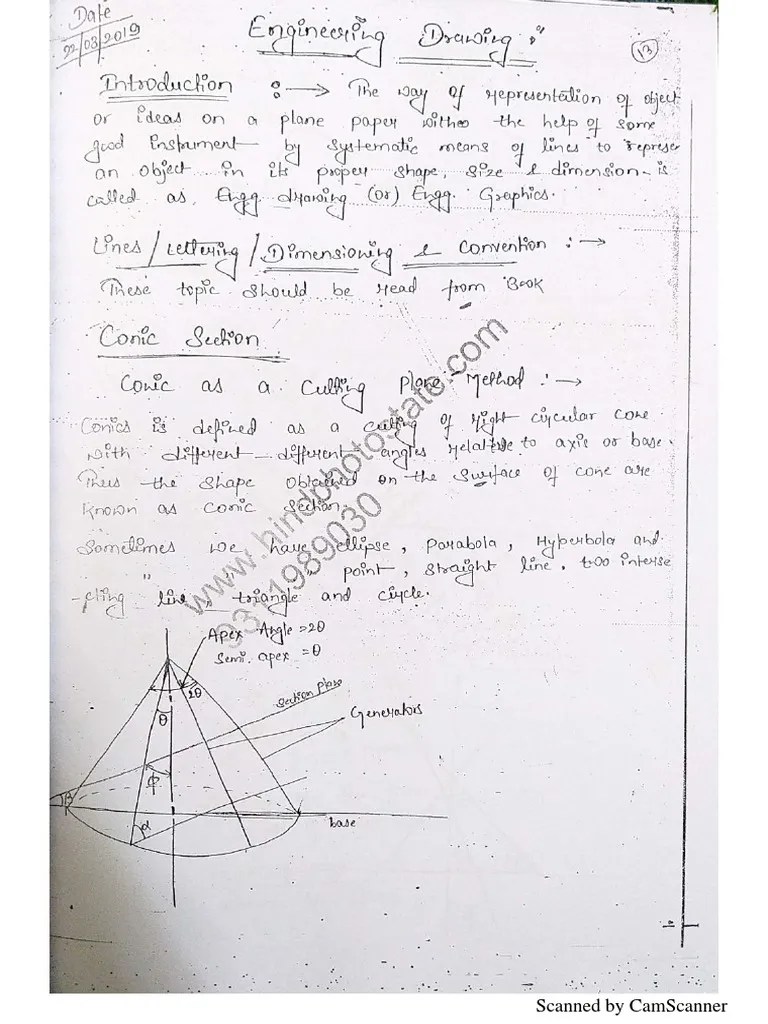 Date
22/03/2019
Engineering Drawing :-
13
Introduction :→ The way of representation of object
or ideas on a plane paper with the help of some
good instrument by systematic means of lines to represe
an object in its proper shape, size & dimension is
called as, Engg drawing (or) Engg. Graphics.
Lines / Lettering / Dimensioning & Convention :→
These topic should be read from Book
Conic Section
Conic as a Cutting plane Method :→
Conics is defined as a cutting of right circular cone
with different - different angles relative to axis or base.
Thus the shape obtained on the surface of cone are
known as conic section.
Sometimes we have ellipse, parabola, Hyperbola and
" " " point, straight line, too interse
-cting line, triangle and circle.
www.hindphotostate.com
9311989030
Apex Angle = 2θ
Semi. apex = θ
2θ
section plane
θ
Generators
φ
β
α
base
Scanned by CamScanner